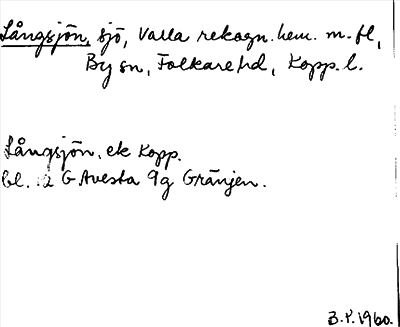 Långsjön, sjö, Valla rekogn. hem. m. fl,
By sn, Folkare hd, Kopp. l.
Långsjön. ek Kopp.
bl. 12 G Avesta 9g Gränjen.
B.P. 1960.